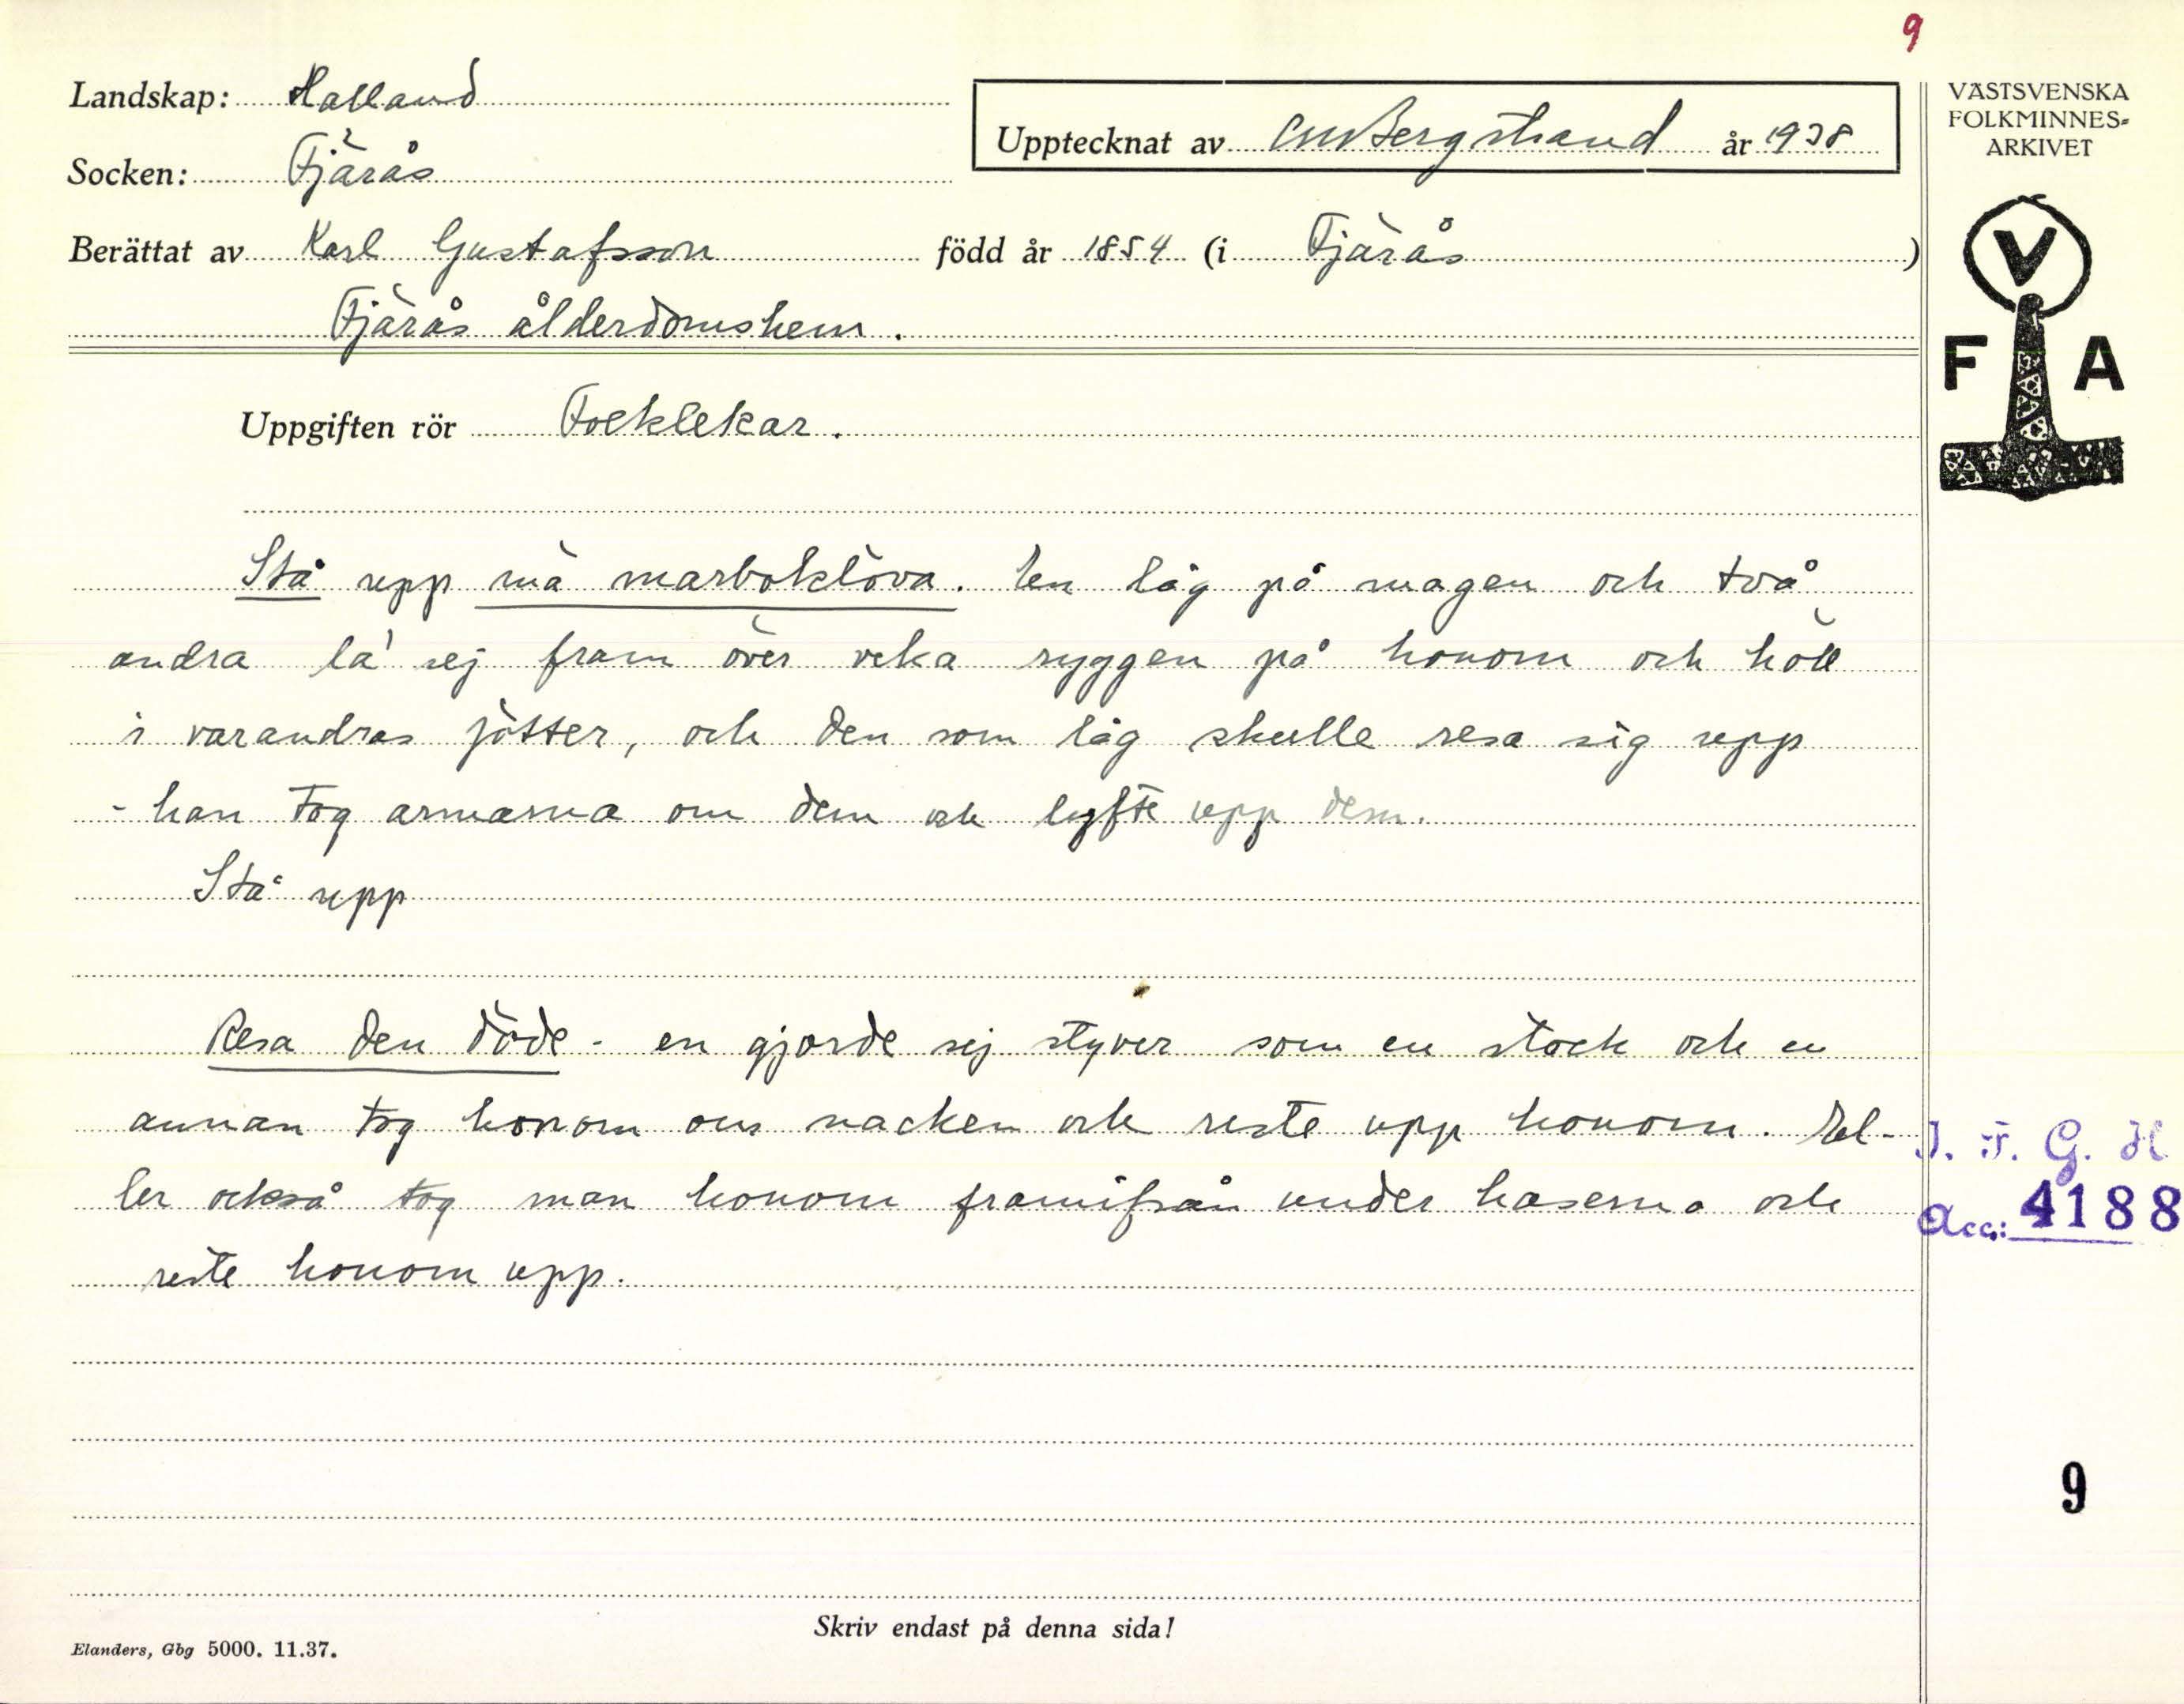 9
Landskap: Halland
Socken: Fjärås
Upptecknat av CM Bergstrand år 1938
Berättat av Karl Gustafsson född år 1854 (i Fjärås)
Fjärås ålderdomshem.
Uppgiften rör Folklekar.
Stå upp mä marboklöva. En låg på magen och två
andra la' sej fram över veka ryggen på honom och höll
i varandras fötter, och den som låg skulle resa sig upp
- han tog armarna om dem och lyfte upp dem.
Stå upp
Resa den döde - en gjorde sej styver som en stock och en
annan tog honom om nacken och reste upp honom. El-
ler också tog man honom framifrån under haserna och
reste honom upp.
Skriv endast på denna sida!
Elanders, Gbg 5000. 11.37.
VÄSTSVENSKA
FOLKMINNES-
ARKIVET
V
F A
I. F. G. H
Acc.: 4188
9